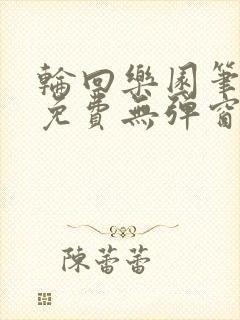 輪回樂園筆
免費無彈窗
陳蕾蕾